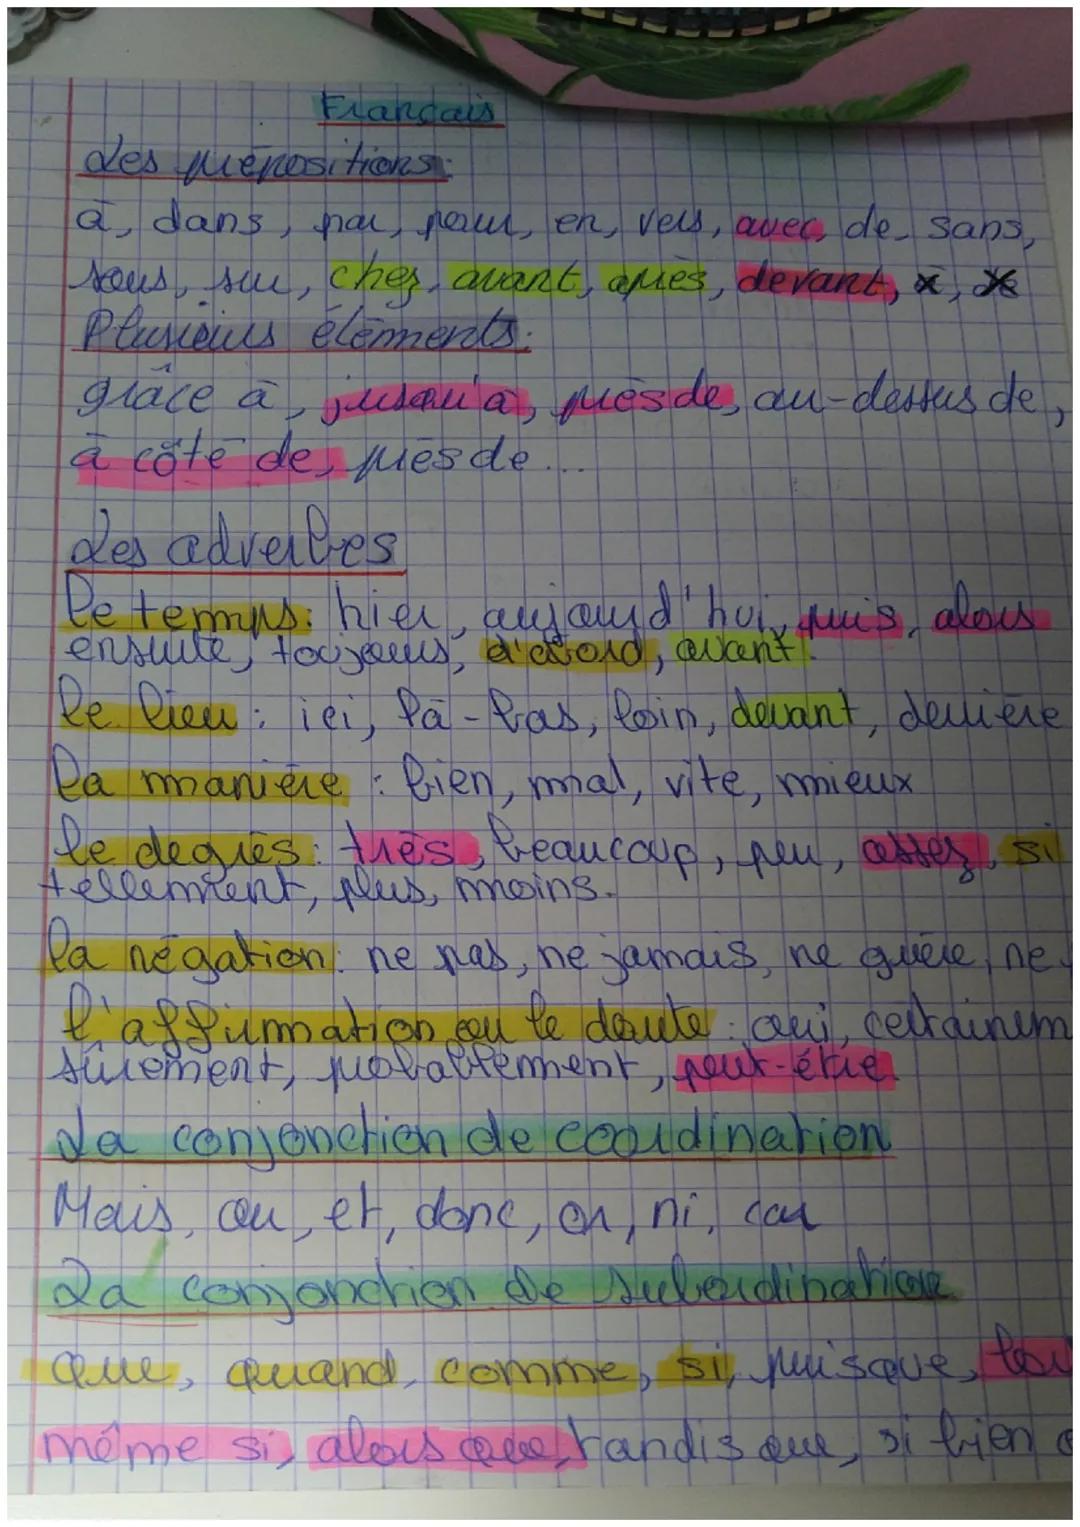 Français
Les prépositions:
à, dans, par, pour, en, vers, avec, de, sans,
sous, sur, chez, avant, après, devant,
Plusieurs éléments:
grâce à, jusqu'à, près de, au-dessus de,
à côté de, près de...
Les adverbes
Le temps: hier, aujourd'hui, puis, alors
ensuite, toujours, d'abord, avant.
Le lieu: ici, là-bas, loin, devant, derrière
La manière: bien, mal, vite, mieux
le degrès: très, beaucoup, peu, assez, si
tellement, plus, moins.
la négation: ne pas, ne jamais, ne guère, ne
l'affirmation ou le doute: oui, certainem
sûrement, probablement, peut-être.
La conjonction de coordination
Mais, ou, et, donc, or, ni, car
La conjonction de subordination
que, quand, comme, si, puisque,
même si, alors que, tandis que, si bien